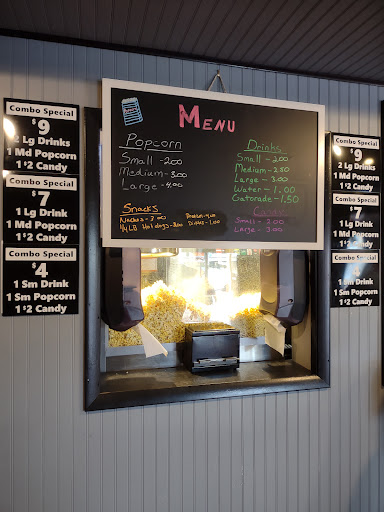 Menu
Popcorn
Small - 2.00
Medium - 3.00
Large - 4.00
Snacks
Nachos - 3.00
1/4 LB Hotdogs - 3.00
Drinks
Small - 2.00
Medium - 2.50
Large - 3.00
Water - 1.00
Gatorade - 1.50
Candy
Small - 2.00
Large - 3.00
Combo Special
$9
2 Lg Drinks
1 Md Popcorn
1 $2 Candy
Combo Special
$7
1 Lg Drink
1 Md Popcorn
1 $2 Candy
Combo Special
$4
1 Sm Drink
1 Sm Popcorn
1 $2 Candy
Combo Special
$9
2 Lg Drinks
1 Md Popcorn
1 $2 Candy
Combo Special
$7
1 Lg Drink
1 Md Popcorn
1 $2 Candy
Combo Special
1 Sm Drink
1 Sm Popcorn
1 $2 Candy